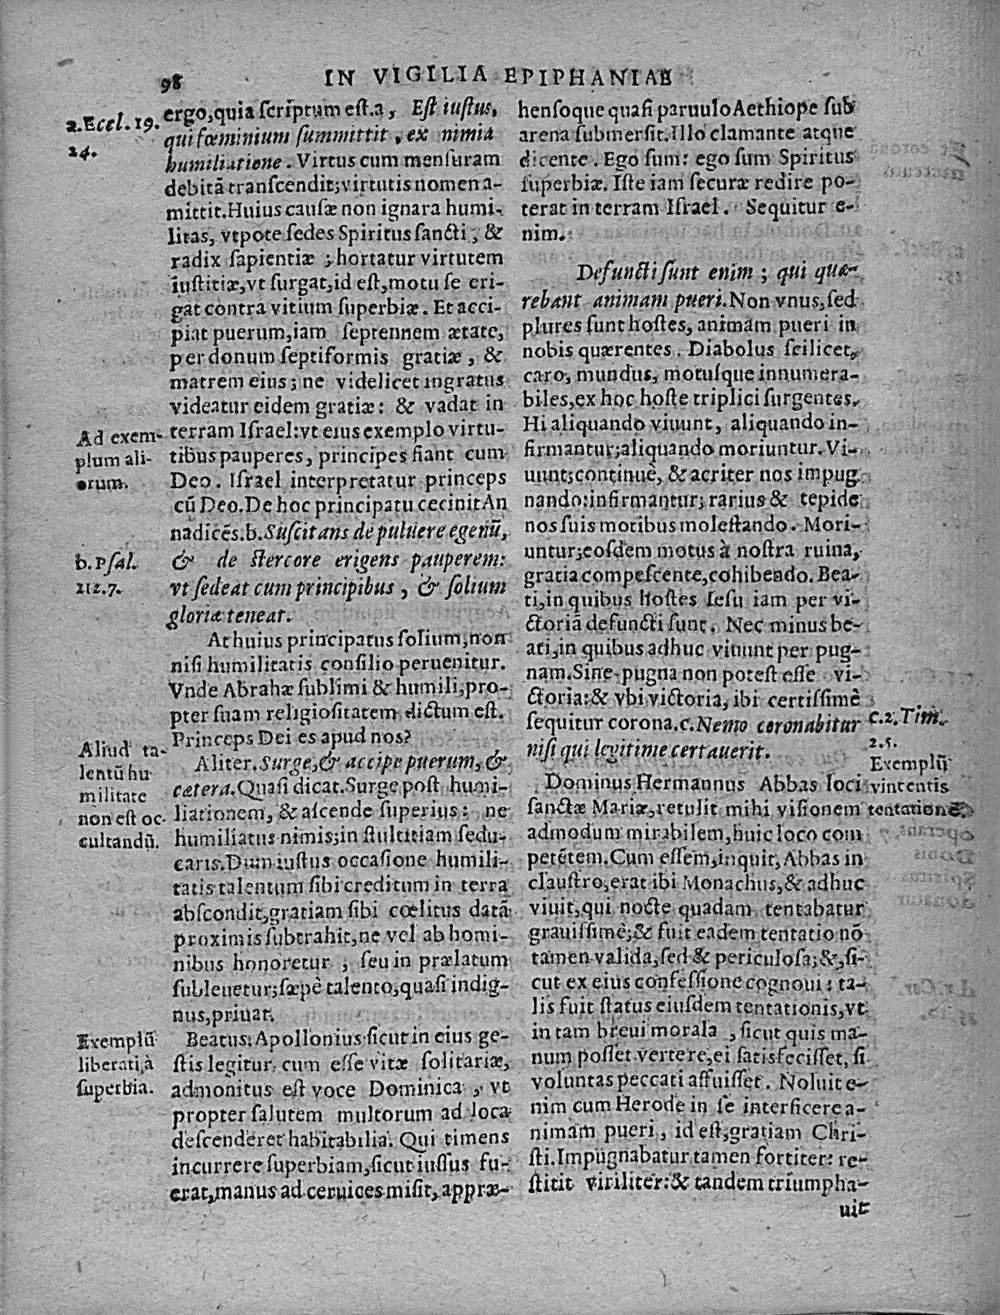 98
IN VIGILIA EPIPHANIAE
a. Eccl. 19.
24.
ergo, quia scriptum est. a, Est iustus,
qui fœminium summittit, ex nimia
humiliatione. Virtus cum mensuram
debitā transcendit; virtutis nomen a-
mittit. Huius causæ non ignara humi-
litas, vtpote sedes Spiritus sancti, &
radix sapientiæ; hortatur virtutem
iustitiæ, vt surgat, id est, motu se eri-
gat contra vitium superbiæ. Et acci-
piat puerum, iam septennem ætate,
per donum septiformis gratiæ, &
matrem eius; ne videlicet ingratus
videatur eidem gratiæ: & vadat in
terram Israel: vt eius exemplo virtu-
tibus pauperes, principes fiant cum
Deo. Israel interpretatur princeps
cū Deo. De hoc principatu cecinit An
na dicēs. b. Suscitans de puluere egenū,
& de stercore erigens pauperem:
vt sedeat cum principibus, & solium
gloriæ teneat.
Ad exem-
plum ali-
orum.
b. Psal.
112. 7.
At huius principatus solium, non
nisi humilitatis consilio peruenitur.
Vnde Abrahæ sublimi & humili, pro-
pter suam religiositatem dictum est.
Princeps Dei es apud nos?
Aliter. Surge, & accipe puerum, &
cætera. Quasi dicat. Surge post humi-
liationem, & ascende superius: ne
humiliatus nimis; in stultitiam sedu-
caris. Dum iustus occasione humili-
tatis talentum sibi creditum in terra
abscondit, gratiam sibi cœlitus datā
proximis subtrahit, ne vel ab homi-
nibus honoretur, seu in prælatum
subleuetur; sæpè talento, quasi indig-
nus, priuat.
Aliud ta-
lentū hu
militate
non est oc-
cultandū.
Beatus Apollonius sicut in eius ge-
stis legitur cum esse vitæ solitariæ,
admonitus est voce Dominica, vt
propter salutem multorum ad loca
descenderet habitabilia. Qui timens
incurrere superbiam, sicut iussus fu-
erat, manus ad ceruices misit, appræ-
Exemplū
liberati à
superbia.
hensoque quasi paruulo Aethiope sub
arena submersit. Illo clamante atque
dicente. Ego sum: ego sum Spiritus
superbiæ. Iste iam securæ redire po-
terat in terram Israel. Sequitur e-
nim.
Defuncti sunt enim; qui quæ-
rebant animam pueri. Non vnus, sed
plures sunt hostes, animam pueri in
nobis quærentes. Diabolus scilicet,
caro, mundus, motusque innumera-
biles, ex hoc hoste triplici surgentes.
Hi aliquando viuunt, aliquando in-
firmantur; aliquando moriuntur. Vi-
uunt; continuè, & acriter nos impug
nando: infirmantur; rarius & tepide
nos suis motibus molestando. Mori-
untur; eosdem motus à nostra ruina,
gratia compescente, cohibendo. Bea-
ti, in quibus hostes Iesu iam per vi-
ctoriā defuncti sunt. Nec minus be-
ati, in quibus adhuc viuunt per pug-
nam. Sine pugna non potest esse vi-
ctoria: & vbi victoria, ibi certissimè
sequitur corona. c. Nemo coronabitur
nisi qui legitime certauerit.
c. 2. Tim.
2. 5.
Exemplū
vincentis
tentationē.
Dominus Hermannus Abbas loci
sanctæ Mariæ, retulit mihi visionem
admodum mirabilem, huic loco com
petētem. Cum essem, inquit, Abbas in
claustro, erat ibi Monachus, & adhuc
viuit, qui nocte quadam tentabatur
grauissimē; & fuit eadem tentatio nō
tamen valida, sed & periculosa; &, si-
cut ex eius confessione cognoui: ta-
lis fuit status eiusdem tentationis, vt
in tam breui morala, sicut quis ma-
num posset vertere, ei satisfecisset, si
voluntas peccati affuisset. Noluit e-
nim cum Herode in se interficere a-
nimam pueri, id est, gratiam Chri-
sti. Impugnabatur tamen fortiter: re-
stitit viriliter: & tandem triumpha-
uit